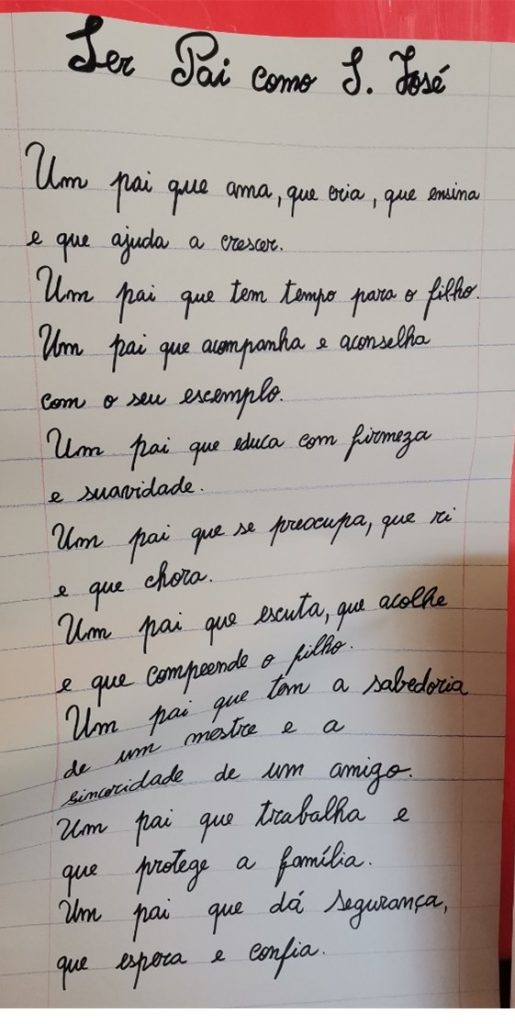 Ser Pai como S. José
Um pai que ama, que cria, que ensina
e que ajuda a crescer.
Um pai que tem tempo para o filho.
Um pai que acompanha e aconselha
com o seu escemplo.
Um pai que educa com firmeza
e suavidade.
Um pai que se preocupa, que ri
e que chora.
Um pai que escuta, que acolhe
e que compeende o filho.
Um pai que tem a sabedoria
de um mestre e a
sinceridade de um amigo.
Um pai que trabalha e
que protege a família.
Um pai que dá segurança,
que espera e confia.